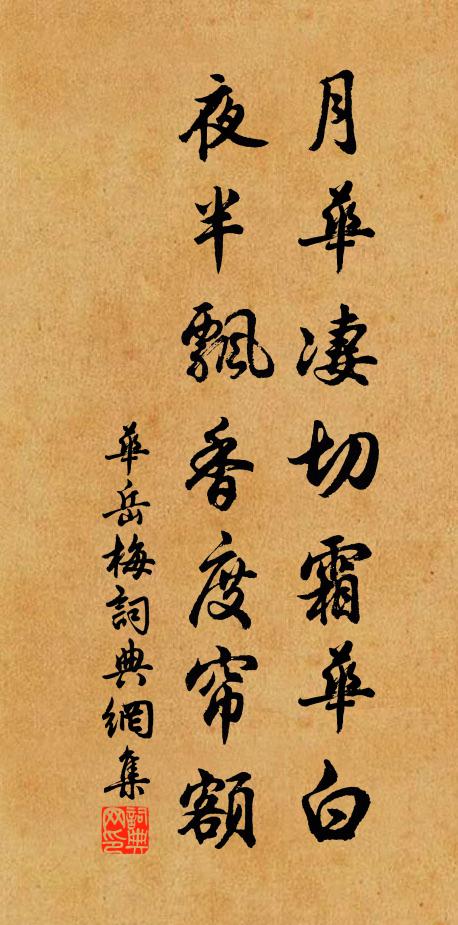 月華凄切霜華白
夜半飄香度帘額
華岳梅詞典網集
詞典网印